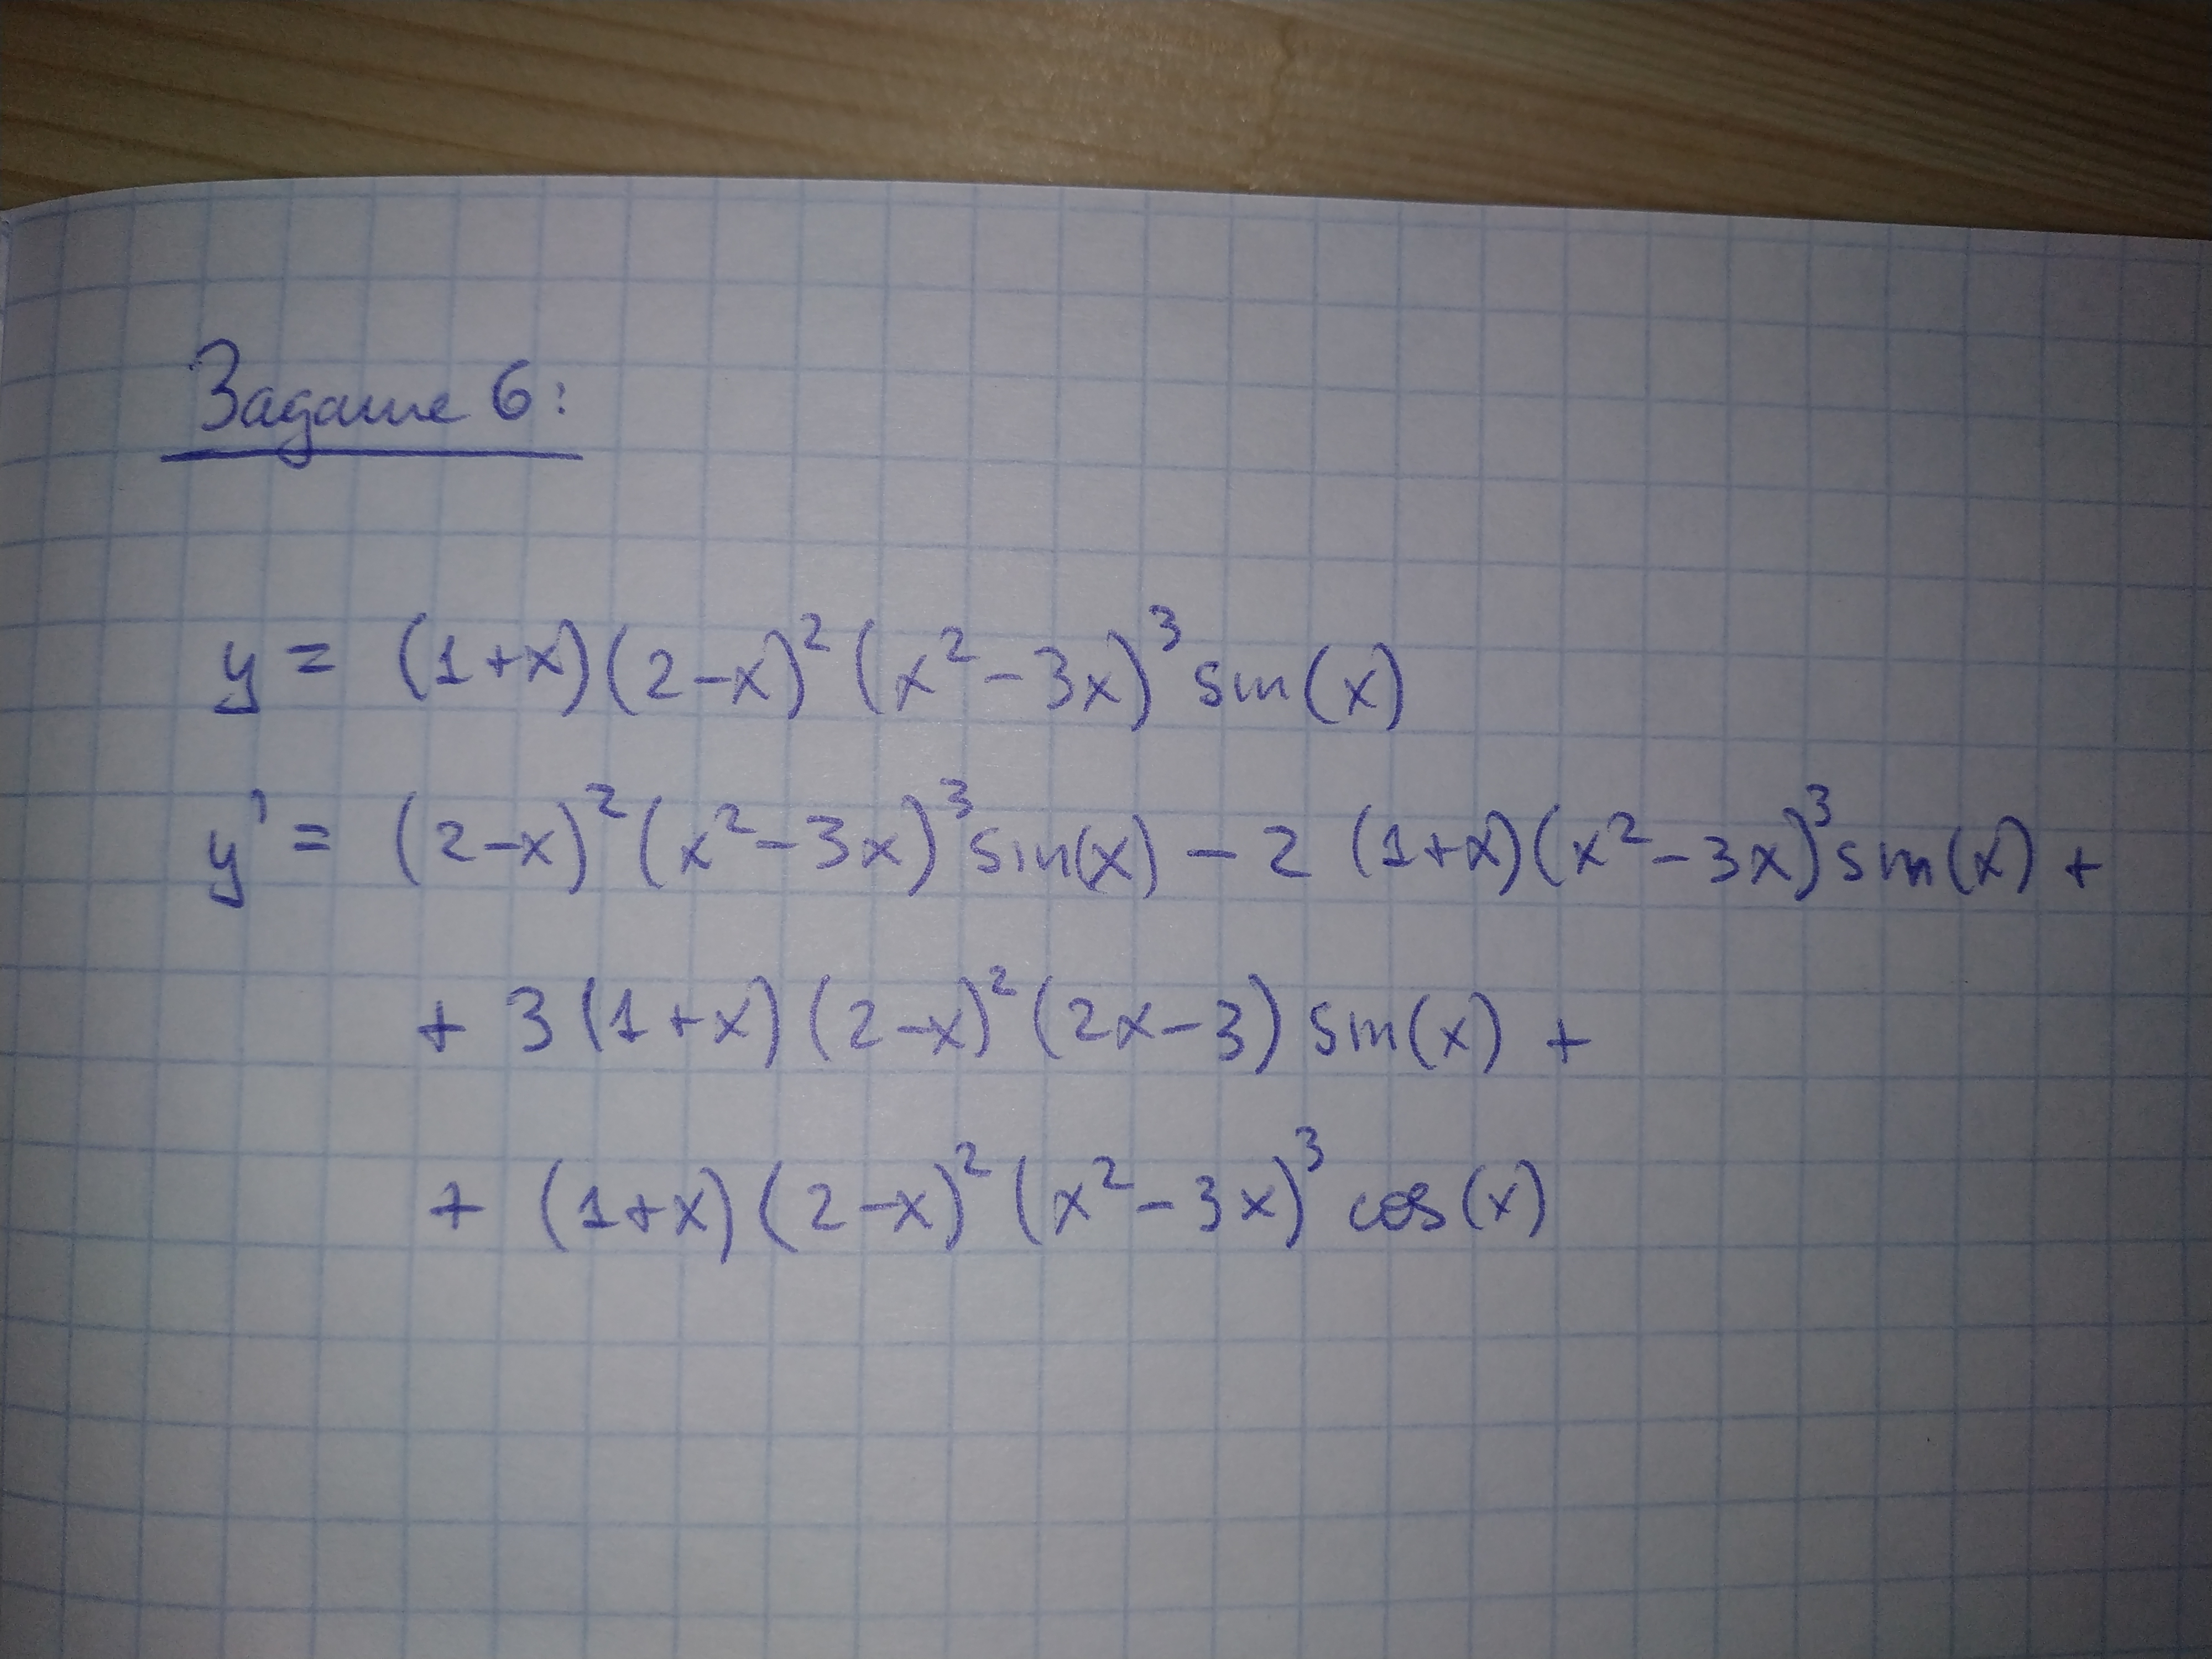 Задание 6:
y = (1+x)(2-x)²(x²-3x)³ sin(x)
y' = (2-x)²(x²-3x)³ sin(x) - 2 (1+x)(x²-3x)³ sin(x) +
+ 3 (1+x)(2-x)²(2x-3) sin(x) +
+ (1+x)(2-x)²(x²-3x)³ cos(x)